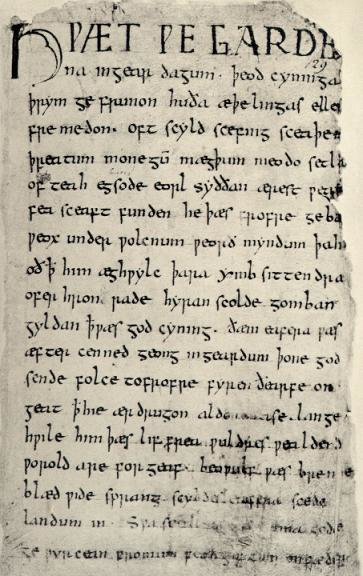 HǷÆT ǷE GARDE
na ingear dagum. þeod cyninga
þrym ge frunon huða æþelingas elle
fremedon. oft scyld scefing sceaþe
þreatum monegū mægþum meodo setla
of teah egsode eorl syððan ærest ƿea
fea sceaft funden he þæs frofre geba
ƿeox under ƿolcnum ƿeorð myndum þah
oð þ̄ him æghƿylc þara ymb sittendra
ofer hron rade hyran scolde gomban
gyldan þ̄ ƿæs god cyning. ðæm eafera ƿæs
æfter cenned geong ingeardum þone god
sende folce tofrofre fyren ðearfe on
geat þ̄ hie ær drugon aldor ase. lange
hƿile him þæs lif frea ƿuldres ƿealdend
ƿorold are forgeaf. beoƿulf ƿæs breme
blæd ƿide sprang scyldes eafera scede
landum in. Sƿa gode
ge ƿyrcean fromum